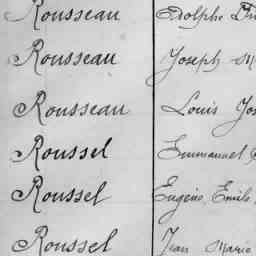 Rousseau Adolphe
Rousseau Joseph
Rousseau Louis
Roussel Emmanuel
Roussel Eugène Emile
Roussel Jean Marie